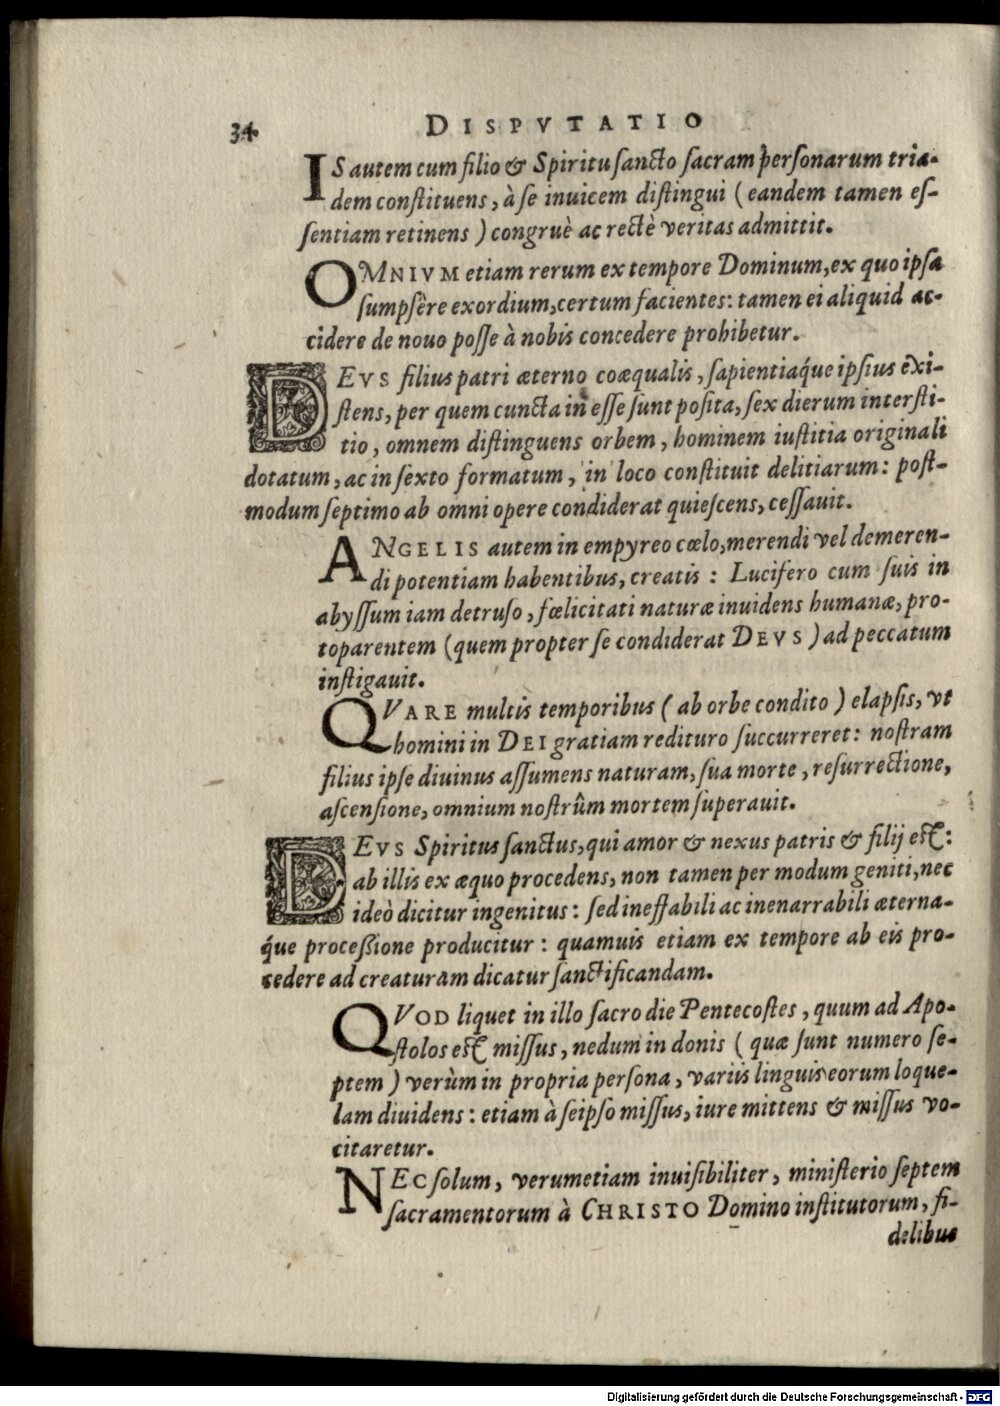 34 DISPVTATIO
IS autem cum filio & Spiritu sancto sacram personarum tria-
dem constituens, à se inuicem distingui ( eandem tamen es-
sentiam retinens ) congruè ac rectè veritas admittit.
OMNIVM etiam rerum ex tempore Dominum, ex quo ipsa
sumpsêre exordium, certum facientes: tamen ei aliquid ac-
cidere de nouo posse à nobis concedere prohibetur.
DEVS filius patri æterno coæqualis, sapientiaq́ue ipsius exi-
stens, per quem cuncta in esse sunt posita, sex dierum intersti-
tio, omnem distinguens orbem, hominem iustitia originali
dotatum, ac in sexto formatum, in loco constituit delitiarum: post-
modum septimo ab omni opere condiderat quiescens, cessauit.
ANGELIS autem in empyreo cœlo, merendi vel demeren-
di potentiam habentibus, creatis : Lucifero cum suis in
abyssum iam detruso, fœlicitati naturæ inuidens humanæ, pro-
toparentem (quem propter se condiderat DEVS ) ad peccatum
instigauit.
QVARE multis temporibus ( ab orbe condito ) elapsis, vt
homini in DEI gratiam redituro succurreret: nostram
filius ipse diuinus assumens naturam, sua morte, resurrectione,
ascensione, omnium nostrûm mortem superauit.
DEVS Spiritus sanctus, qui amor & nexus patris & filij est:
ab illis ex æquo procedens, non tamen per modum geniti, nec
ideò dicitur ingenitus: sed ineffabili ac inenarrabili æterna-
q́ue processione producitur : quamuis etiam ex tempore ab eis pro-
cedere ad creaturam dicatur sanctificandam.
QVOD liquet in illo sacro die Pentecostes, quum ad Apo-
stolos est missus, nedum in donis ( quæ sunt numero se-
ptem ) verùm in propria persona, variis linguis eorum loque-
lam diuidens: etiam à seipso missus, iure mittens & missus vo-
citaretur.
NEC solum, verumetiam inuisibiliter, ministerio septem
sacramentorum à CHRISTO Domino institutorum, fi-
delibus
Digitalisierung gefördert durch die Deutsche Forschungsgemeinschaft - DFG